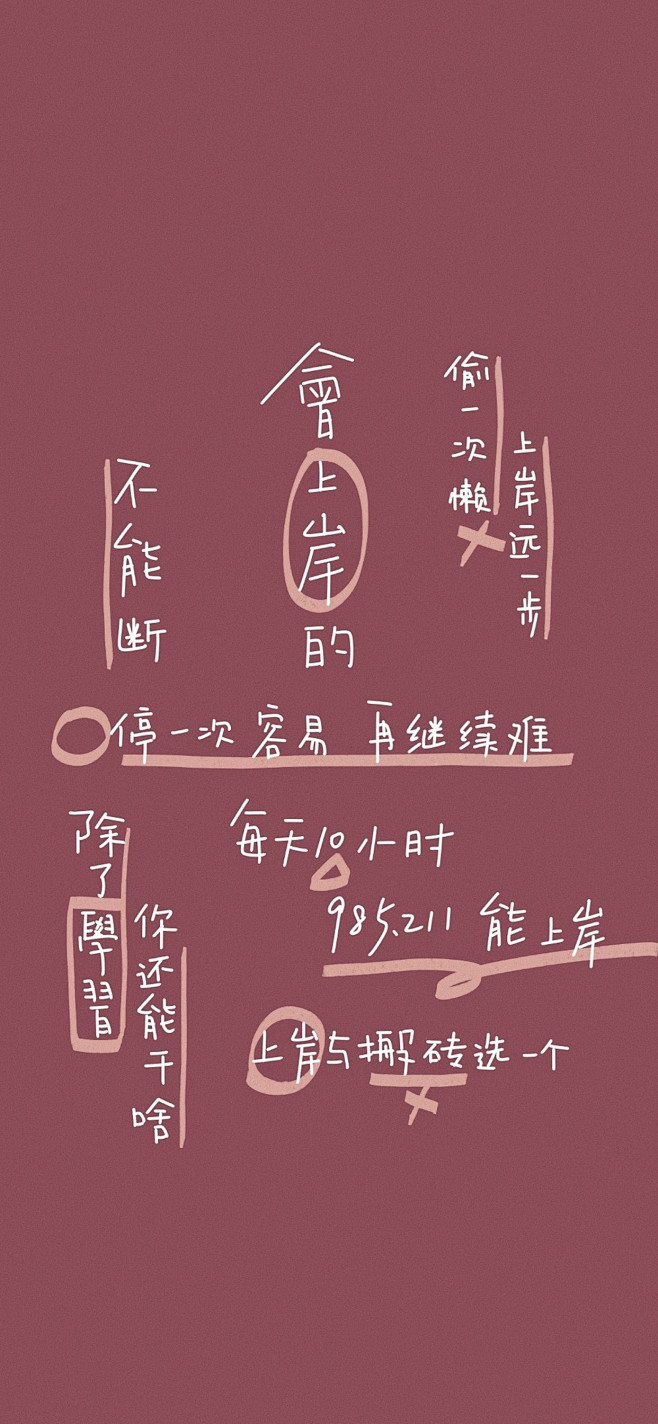 會上岸的
偷一次懒
上岸远一步
不能断
停一次容易 再继续难
除了學習
你还能干啥
每天10小时
985.211 能上岸
上岸与搬砖选一个